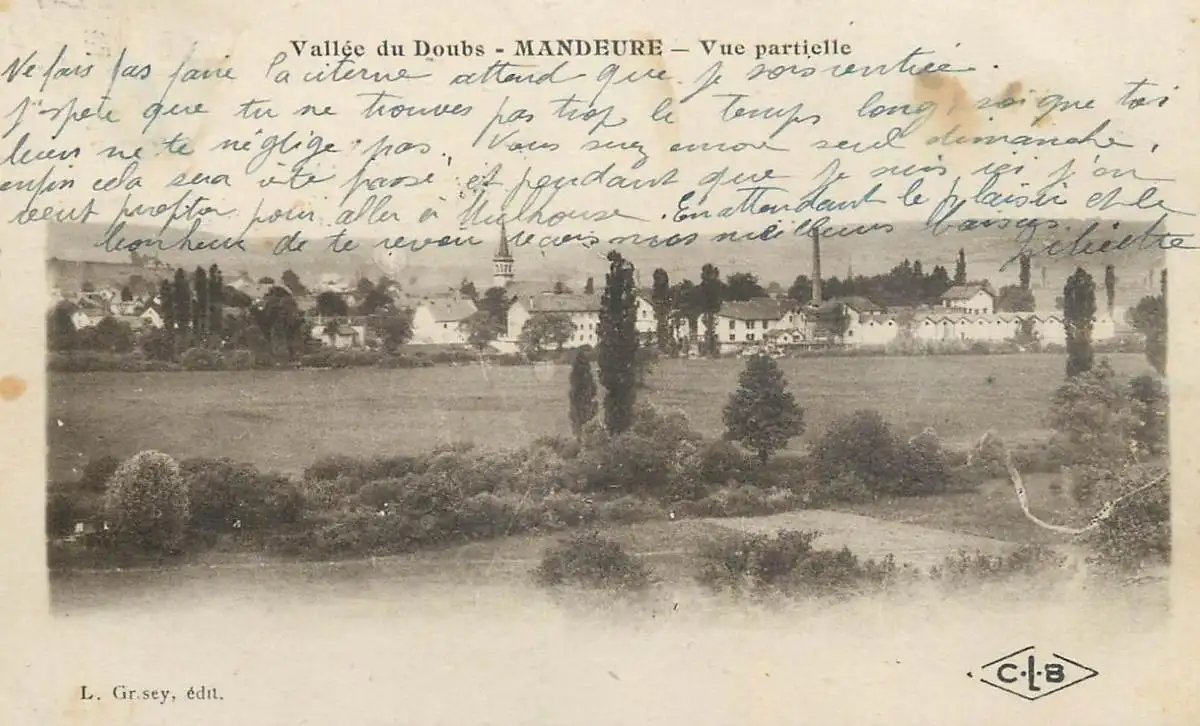 Vallée du Doubs - MANDEURE - Vue partielle
Ne fais pas faire la citerne attend que je sois rentrée.
J'espère que tu ne trouves pas trop le temps long, soi que toi
ne te néglige pas. Vous serez encore seul dimanche,
enfin cela sera vite passé et pendant que je suis ici j'en
veut profiter pour aller à Mulhouse. En attendant le plaisir et le
bonheur de te revoir reçois mes meilleurs baisers. Juliette
L. Grisey, édit.
C·L·B